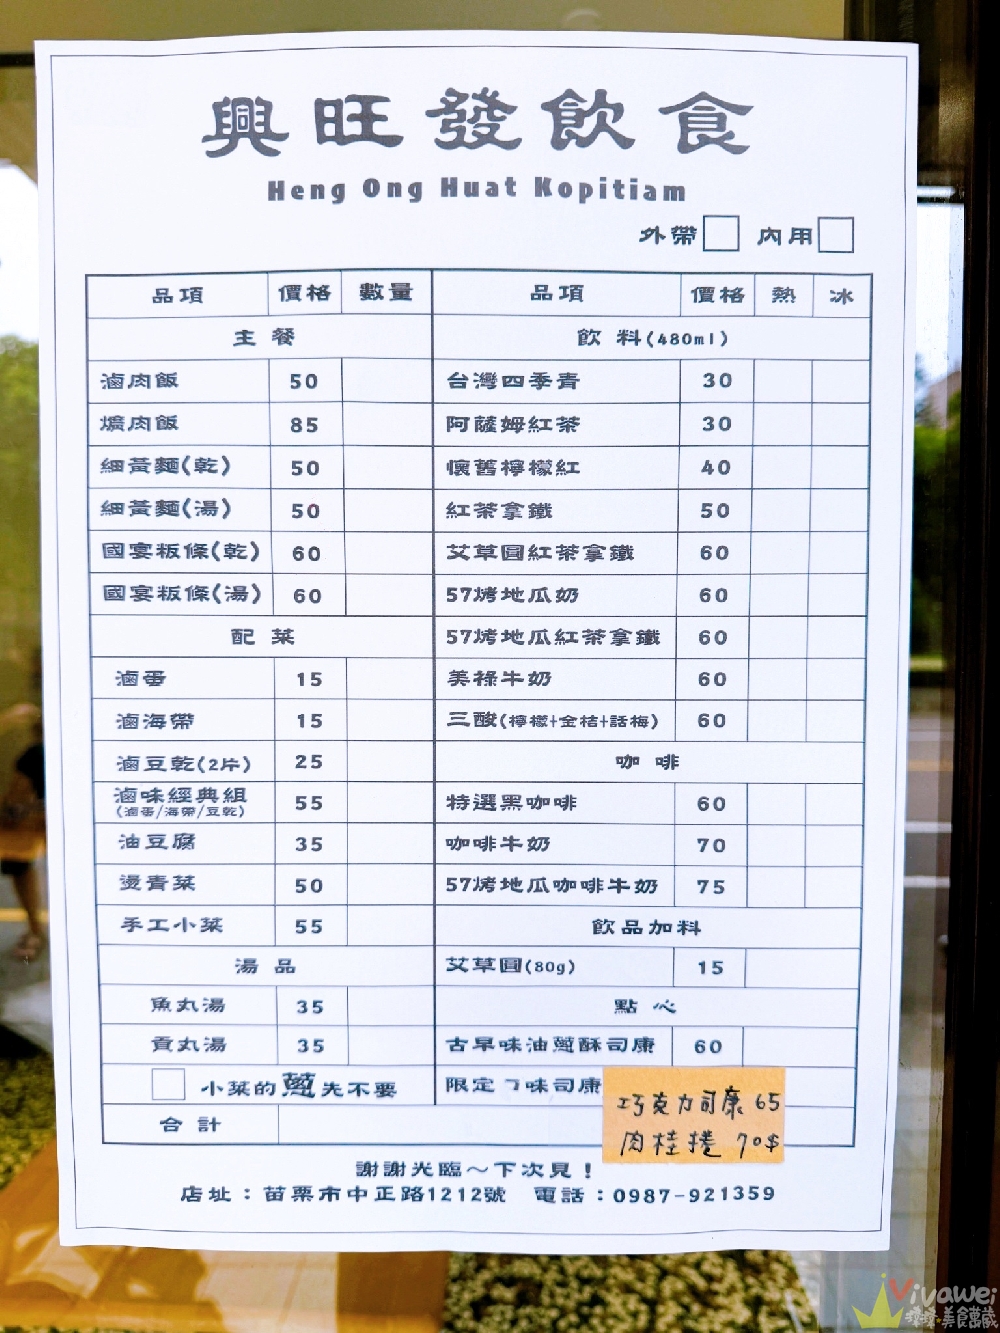 興旺發飲食
Heng Ong Huat Kopitiam
外帶 內用
品項 價格 數量
主餐
滷肉飯 50
爌肉飯 85
細黃麵(乾) 50
細黃麵(湯) 50
國宴粄條(乾) 60
國宴粄條(湯) 60
配菜
滷蛋 15
滷海帶 15
滷豆乾(2片) 25
滷味經典組 55
(滷蛋/海帶/豆乾)
油豆腐 35
燙青菜 50
手工小菜 55
湯品
魚丸湯 35
貢丸湯 35
小菜的蔥先不要
合計
品項 價格 熱 冰
飲料(480ml)
台灣四季青 30
阿薩姆紅茶 30
懷舊檸檬紅 40
紅茶拿鐵 50
艾草圓紅茶拿鐵 60
57烤地瓜奶 60
57烤地瓜紅茶拿鐵 60
美祿牛奶 60
三酸(檸檬+金桔+話梅) 60
咖啡
特選黑咖啡 60
咖啡牛奶 70
57烤地瓜咖啡牛奶 75
飲品加料
艾草圓(80g) 15
點心
古早味油蔥酥司康 60
限定口味司康
巧克力司康 65
肉桂捲 70$
謝謝光臨~下次見!
店址:苗栗市中正路1212號 電話:0987-921359
Vivawei